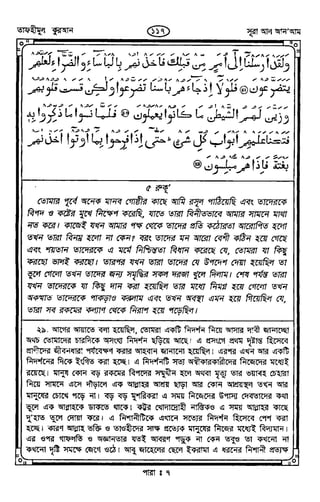 তাফহীমুল কুরআন
১১৭
সূরা আল আন'আম
وَلَقَدْ أَرْسَلْنَا إِلَىٰ أُمَمٍ مِّن قَبْلِكَ فَأَخَذْنَٰهُم بِالْبَأْسَاءِ وَالضَّرَّاءِ لَعَلَّهُمْ
يَتَضَرَّعُونَ ﴿٤٢﴾ فَلَوْلَا إِذْ جَاءَهُم بَأْسُنَا تَضَرَّعُوا وَلَٰكِن قَسَتْ قُلُوبُهُمْ
وَزَيَّنَ لَهُمُ الشَّيْطَٰنُ مَا كَانُوا يَعْمَلُونَ ﴿٤٣﴾ فَلَمَّا نَسُوا مَا ذُكِّرُوا بِهِ
فَتَحْنَا عَلَيْهِمْ أَبْوَابَ كُلِّ شَيْءٍ حَتَّىٰ إِذَا فَرِحُوا بِمَا أُوتُوا أَخَذْنَٰهُم
بَغْتَةً فَإِذَا هُم مُّبْلِسُونَ ﴿٤٤﴾
৫ রুকূ'
তোমার পূর্বে অনেক মানব গোষ্ঠীর কাছে আমি রসূল পাঠিয়েছি এবং তাদেরকে
বিপদ ও কষ্টের মুখে নিক্ষেপ করেছি, যাতে তারা বিনীতভাবে আমার সামনে মাথা
নত করে। কাজেই যখন আমার পক্ষ থেকে তাদের প্রতি কঠোরতা আরোপিত হলো
তখন তারা বিনম্র হলো না কেন? বরং তাদের মন আরো বেশী কঠিন হয়ে গেছে
এবং শয়তান তাদেরকে এ মর্মে নিশ্চিন্ততা বিধান করেছে যে, তোমরা যা কিছু
করছো ভালই করছো। তারপর যখন তারা তাদের যে উপদেশ দেয়া হয়েছিল তা
ভুলে গেলো তখন তাদের জন্য সমৃদ্ধির সকল দরজা খুলে দিলাম। শেষ পর্যন্ত তারা
যখন তাদেরকে যা কিছু দান করা হয়েছিল তার মধ্যে নিমগ্ন হয়ে গেলো তখন
অকস্মাত তাদেরকে পাকড়াও করলাম এবং তখন অবস্থা এমন হয়ে গিয়েছিল যে,
তারা সব রকমের কল্যাণ থেকে নিরাশ হয়ে পড়েছিল।
২৯. আগের আয়াতে বলা হয়েছিল, তোমরা একটি নিদর্শন নিয়ে আসার দাবী জানাচ্ছো
অথচ তোমাদের চারদিকে অসংখ্য নিদর্শন ছড়িয়ে আছে। এ প্রসংগে প্রথম দৃষ্টান্ত হিসেবে
প্রাণীদের জীবনধারা পর্যবেক্ষণ করার আহবান জানানো হয়েছিল। এরপর এখন আর একটি
নিদর্শনের দিকে ইংগিত করা হচ্ছে। এ নিদর্শনটি সত্য অস্বীকারকারীদের নিজেদের মধ্যেই
রয়েছে। মানুষ কোন বড় রকমের বিপদের সম্মুখীন হলে অথবা মৃত্যু তার ভয়াবহ চেহারা
নিয়ে সামনে এসে দাঁড়ালে এক আল্লাহর আশ্রয় ছাড়া আর কোন আশ্রয়স্থল তখন আর
মানুষের চোখে পড়ে না। বড় বড় মুশরিকরা এ সময় নিজেদের উপাস্য দেবতাদের কথা
ভুলে এক আল্লাহকে ডাকতে থাকে। কট্টর খোদাদ্রোহী নাস্তিকও এ সময় আল্লাহর কাছে
দু'হাত তুলে দোয়া করে। এ নিশানীটিকে এখানে সত্যের নিদর্শন হিসেবে পেশ করা
হচ্ছে। কারণ আল্লাহ ভক্তি ও তাওহীদের সাক্ষ্য প্রত্যেক মানুষের নিজের মধ্যেই বিদ্যমান।
এর ওপর গাফলতি ও অজ্ঞানতার যতই আবরণ পড়ুক না কেন তবুও তা কখনো না
কখনো দৃষ্টি সমক্ষে জেগে ওঠে। আবু জাহেলের ছেলে ইকরামা এ ধরনের নিশানী প্রত্যক্ষ
পারা : ৭